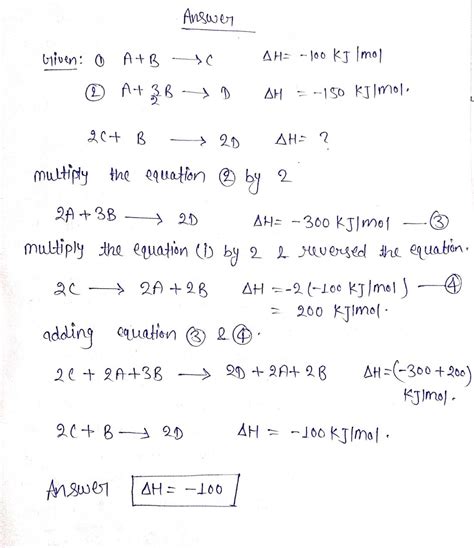 Answer
Given: ① A+B ⟶ C ΔH = -100 KJ/mol
② A+ 3/2 B ⟶ D ΔH = -150 KJ/mol.
2C+ B ⟶ 2D ΔH = ?
multiply the equation ② by 2
2A+3B ⟶ 2D ΔH = -300 KJ/mol —③
multiply the equation (1) by 2 & reversed the equation.
2C ⟶ 2A+2B ΔH = -2(-100 KJ/mol) —④
= 200 KJ/mol.
adding equation ③ & ④.
2C + 2A+3B ⟶ 2D + 2A+ 2B ΔH = (-300+200)
KJ/mol.
2C + B ⟶ 2D ΔH = -100 KJ/mol.
Answer ΔH = -100